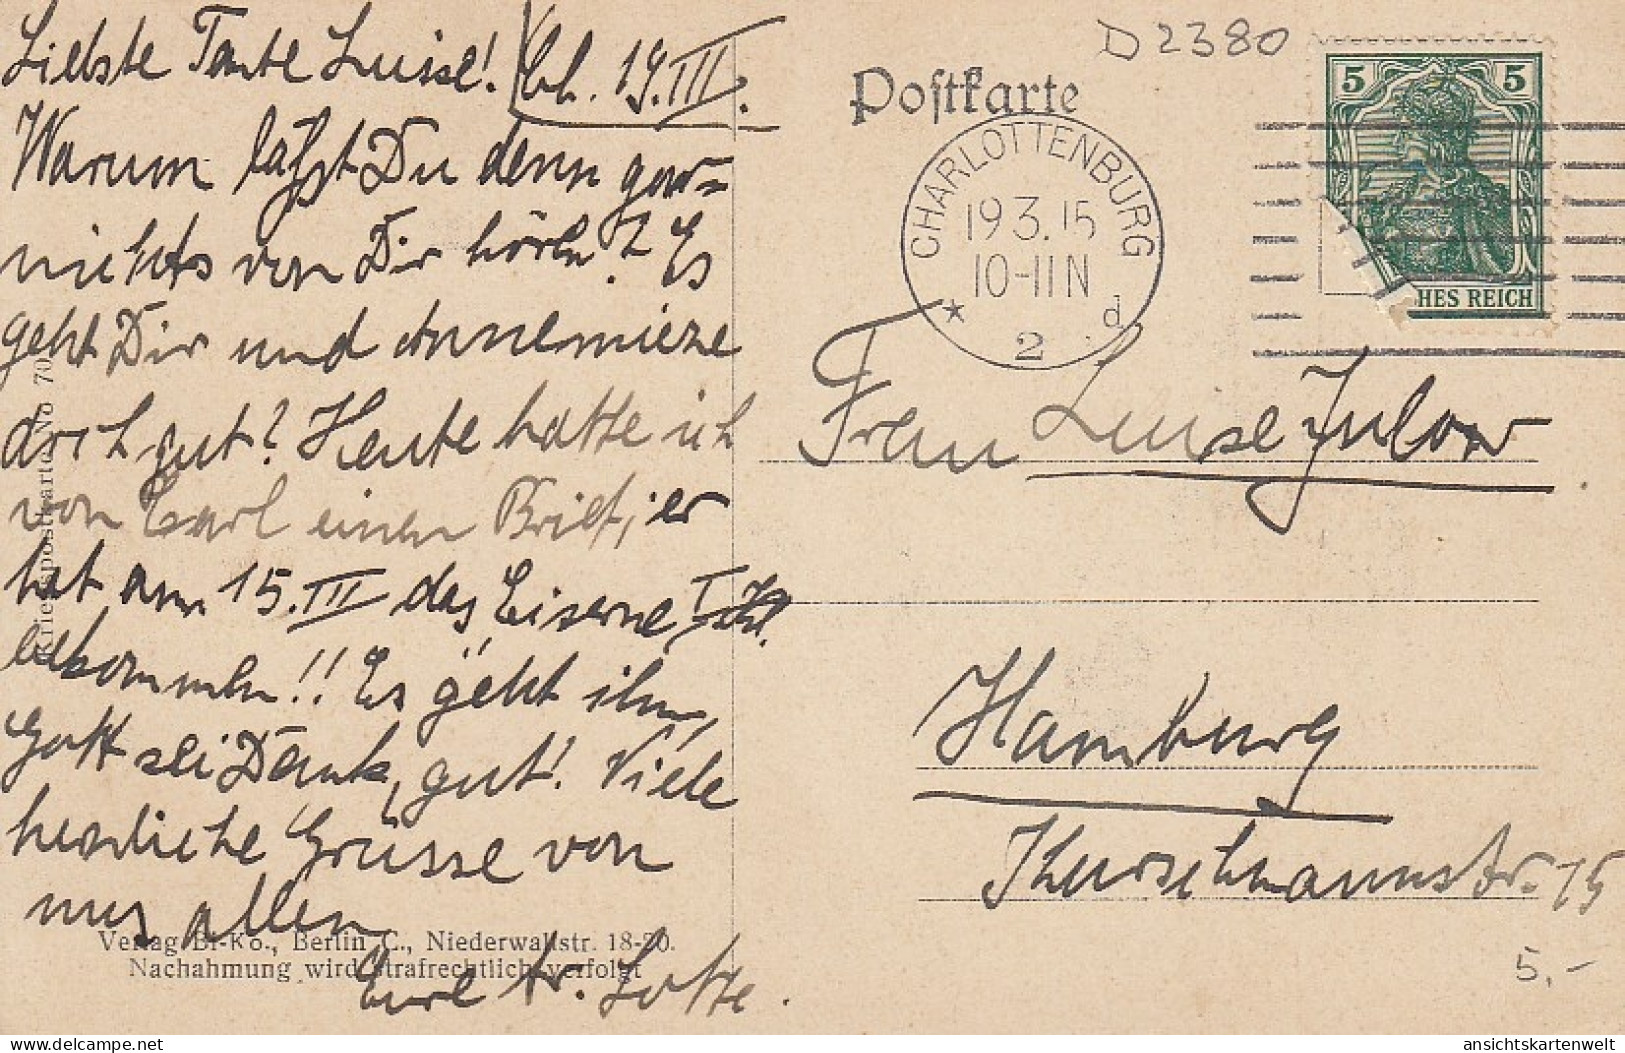 Liebste Tante Luise! Ch. 19.III.
Warum läßt Du denn gar=
nichts von Dir hören? Es
geht Dir und Annemieze
doch gut? Heute hatte ich
von Carl einen Brief, er
hat am 15.III das Eiserne I. Kl.
bekommen!! Es geht ihm,
Gott sei Dank, gut! Viele
herzliche Grüsse von
uns allen
Eure tr. Lotte.
Kriegspostkarte No 70
Verlag Bi-Ko., Berlin C., Niederwallstr. 18-20.
Nachahmung wird strafrechtlich verfolgt
D 2380
Postkarte
CHARLOTTENBURG
19.3.15
10-11N
* 2 d
5 5
HES REICH
Frau Luise Julow
Hamburg
15
5,-
delcampe.net
ansichtskartenwelt